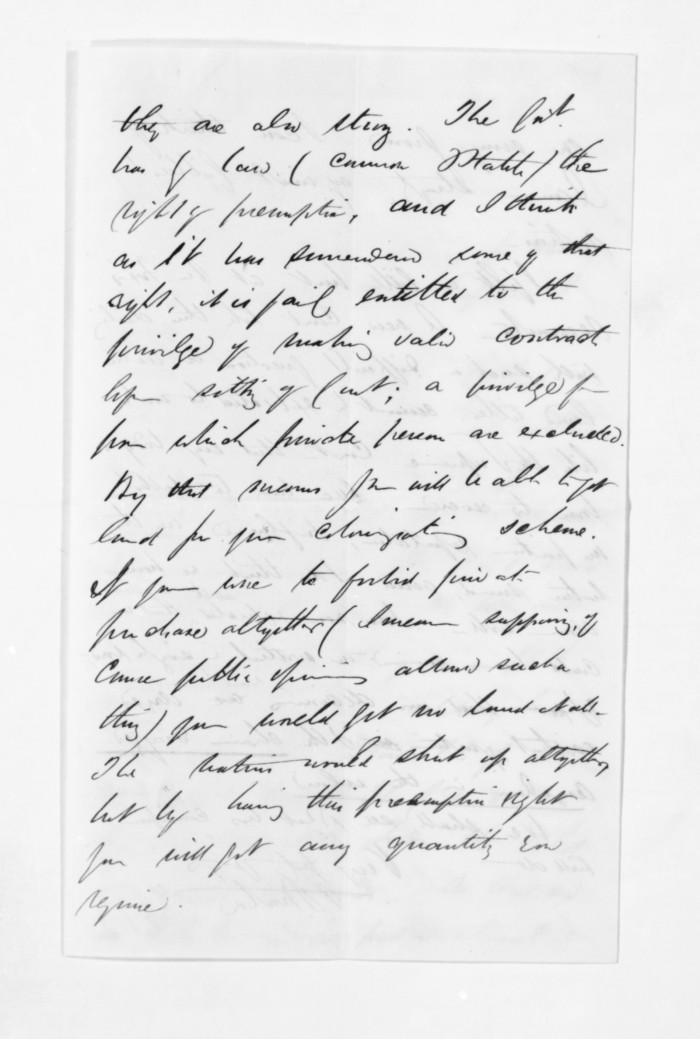 they are also strong. The Govt.
has by law (common & Statute) the
right of preemption, and I think
as it has surrendered some of that
right, it is fairly entitled to the
privilege of making valid contracts
before sitting of Court; a privilege
from which private persons are excluded.
By that means you will be able to get
land for your colonizating scheme.
If you were to forbid private
purchase altogether (I mean supposing, of
course public opinion allowed such a
thing) you would get no land at all.
The natives would shut up altogether
but by having this preemptive right
you will get any quantity you
require.